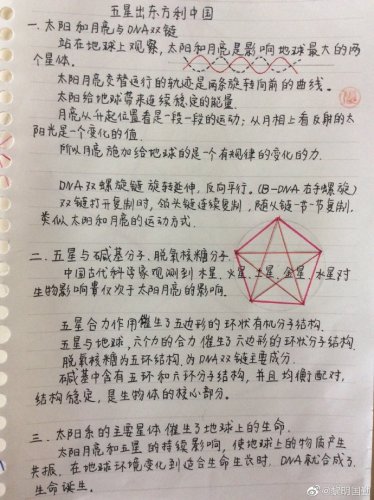 五星出东方利中国
一、太阳和月亮与DNA双链
站在地球上观察,太阳和月亮是影响地球最大的两
个星体。
太阳月亮交替运行的轨迹是两条旋转向前的曲线。
太阳给地球带来连续稳定的能量
月亮从升起位置看是一段一段的运动;从月相上看反射的太
阳光是一个变化的值.
所以月亮施加给地球的是一个有规律的变化的力.
DNA双螺旋链旋转延伸,反向平行。(B-DNA右手螺旋)
双链打开复制时,领头链连续复制,随从链一节一节复制.
类似太阳和月亮的运动方式.
二、五星与碱基分子、脱氧核糖分子.
中国古代科学家观测到木星、火星、土星、金星、水星对
生物影响仅次于太阳月亮的影响.
五星合力作用催生了五边形的环状有机分子结构.
五星与地球,六个力的合力催生了六边形的环状分子结构.
脱氧核糖为五环结构,为DNA双链主要成分.
碱基中含有五环和六环分子结构,并且均衡配对,
结构稳定,是生物体的核心部分。
三、太阳系的主要星体催生了地球上的生命.
太阳月亮和五星的持续影响,使地球上的物质产生
共振,在地球环境变化到适合生命生长时,DNA就合成了.
生命诞生。
@黎明国